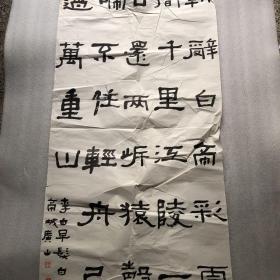 朝辭白帝彩雲
間千里江陵一
日還兩岸猿聲
啼不住輕舟已
過萬重山
李白早發白
帝城廣山